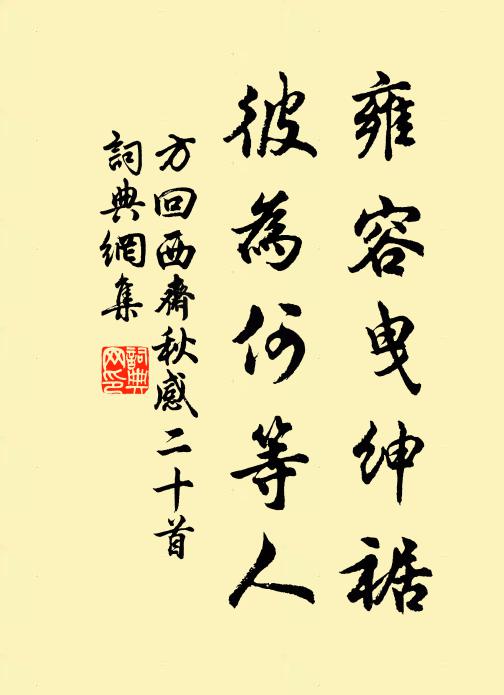 雍容曳紳裾
彼為何等人
方回西齋秋感二十首
詞典網集
詞典
网印